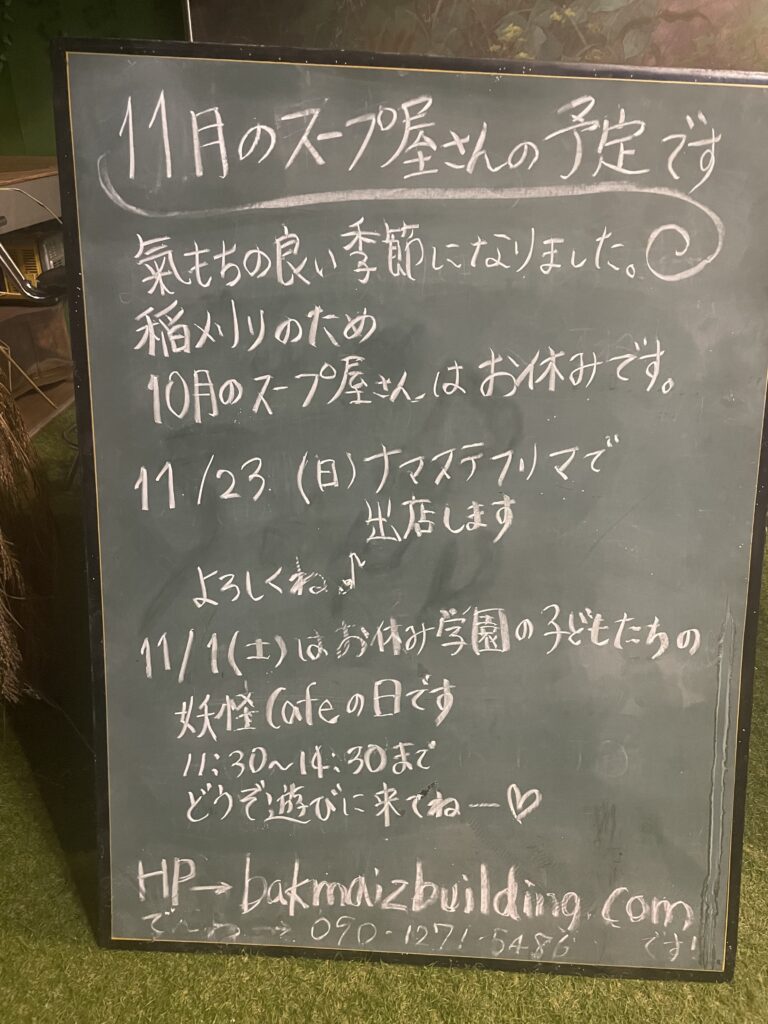 11月のスープ屋さんの予定です
氣もちの良い季節になりました。
稲刈りのため
10月のスープ屋さんはお休みです。
11/23(日)ナマステフリマで
出店します
よろしくね♪
11/1(土)はお休み学園の子どもたちの
妖怪Cafeの日です
11:30〜14:30まで
どうぞ遊びに来てねー♡
HP→bakmaizbuilding.com
で〜わ→090-1271-5486です!